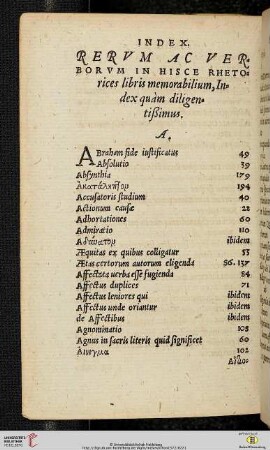 INDEX.
RERVM AC VER-
BORVM IN HISCE RHETO-
rices libris memorabilium, In-
dex quàm diligen-
tißimus.
A.
ABraham fide iustificatus 49
Absolutio 39
Absynthia 179
Accusatoris studium 40
Actionum causæ 22
Adhortationes 60
Admiratio 110
ibidem
Æquitas ex quibus colligatur 53
Ætas certorum autorum eligenda 56. 137
Affectata uerba esse fugienda 84
Affectus duplices 71
Affectus leniores qui ibidem
Affectus unde oriuntur ibidem
de Affectibus ibidem
Agnominatio 105
Agnus in sacris literis quid significet 60
Αἴνιγμα 102